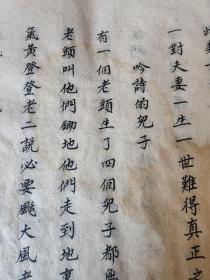 一對夫妻一生一世難得真正之
吟詩的兒子
有一個老頭生了四個兒子都
老頭叫他們鋤地他們走到地
氣黃登登老二說必要颳大風老